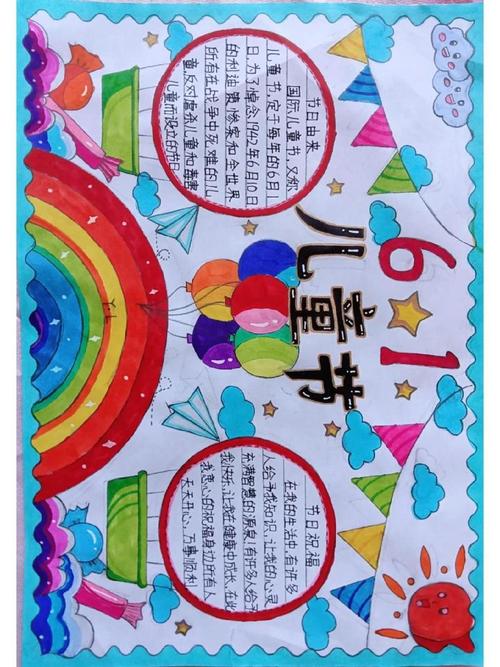 6 1
儿童节
节日由来
国际儿童节，又称
儿童节，定于每年的6月1
日。为了悼念1942年6月10日
的利迪策惨案和全世界
所有在战争中死难的儿
童反对虐杀儿童和毒害
儿童而设立的节日
节日祝福
在我的生活中，有许多
人给予我知识，让我的心灵
充满智慧的源泉，有许多人给予
我快乐，让我在健康中成长，在此
我衷心的祝福身边所有人
天天开心，万事顺利